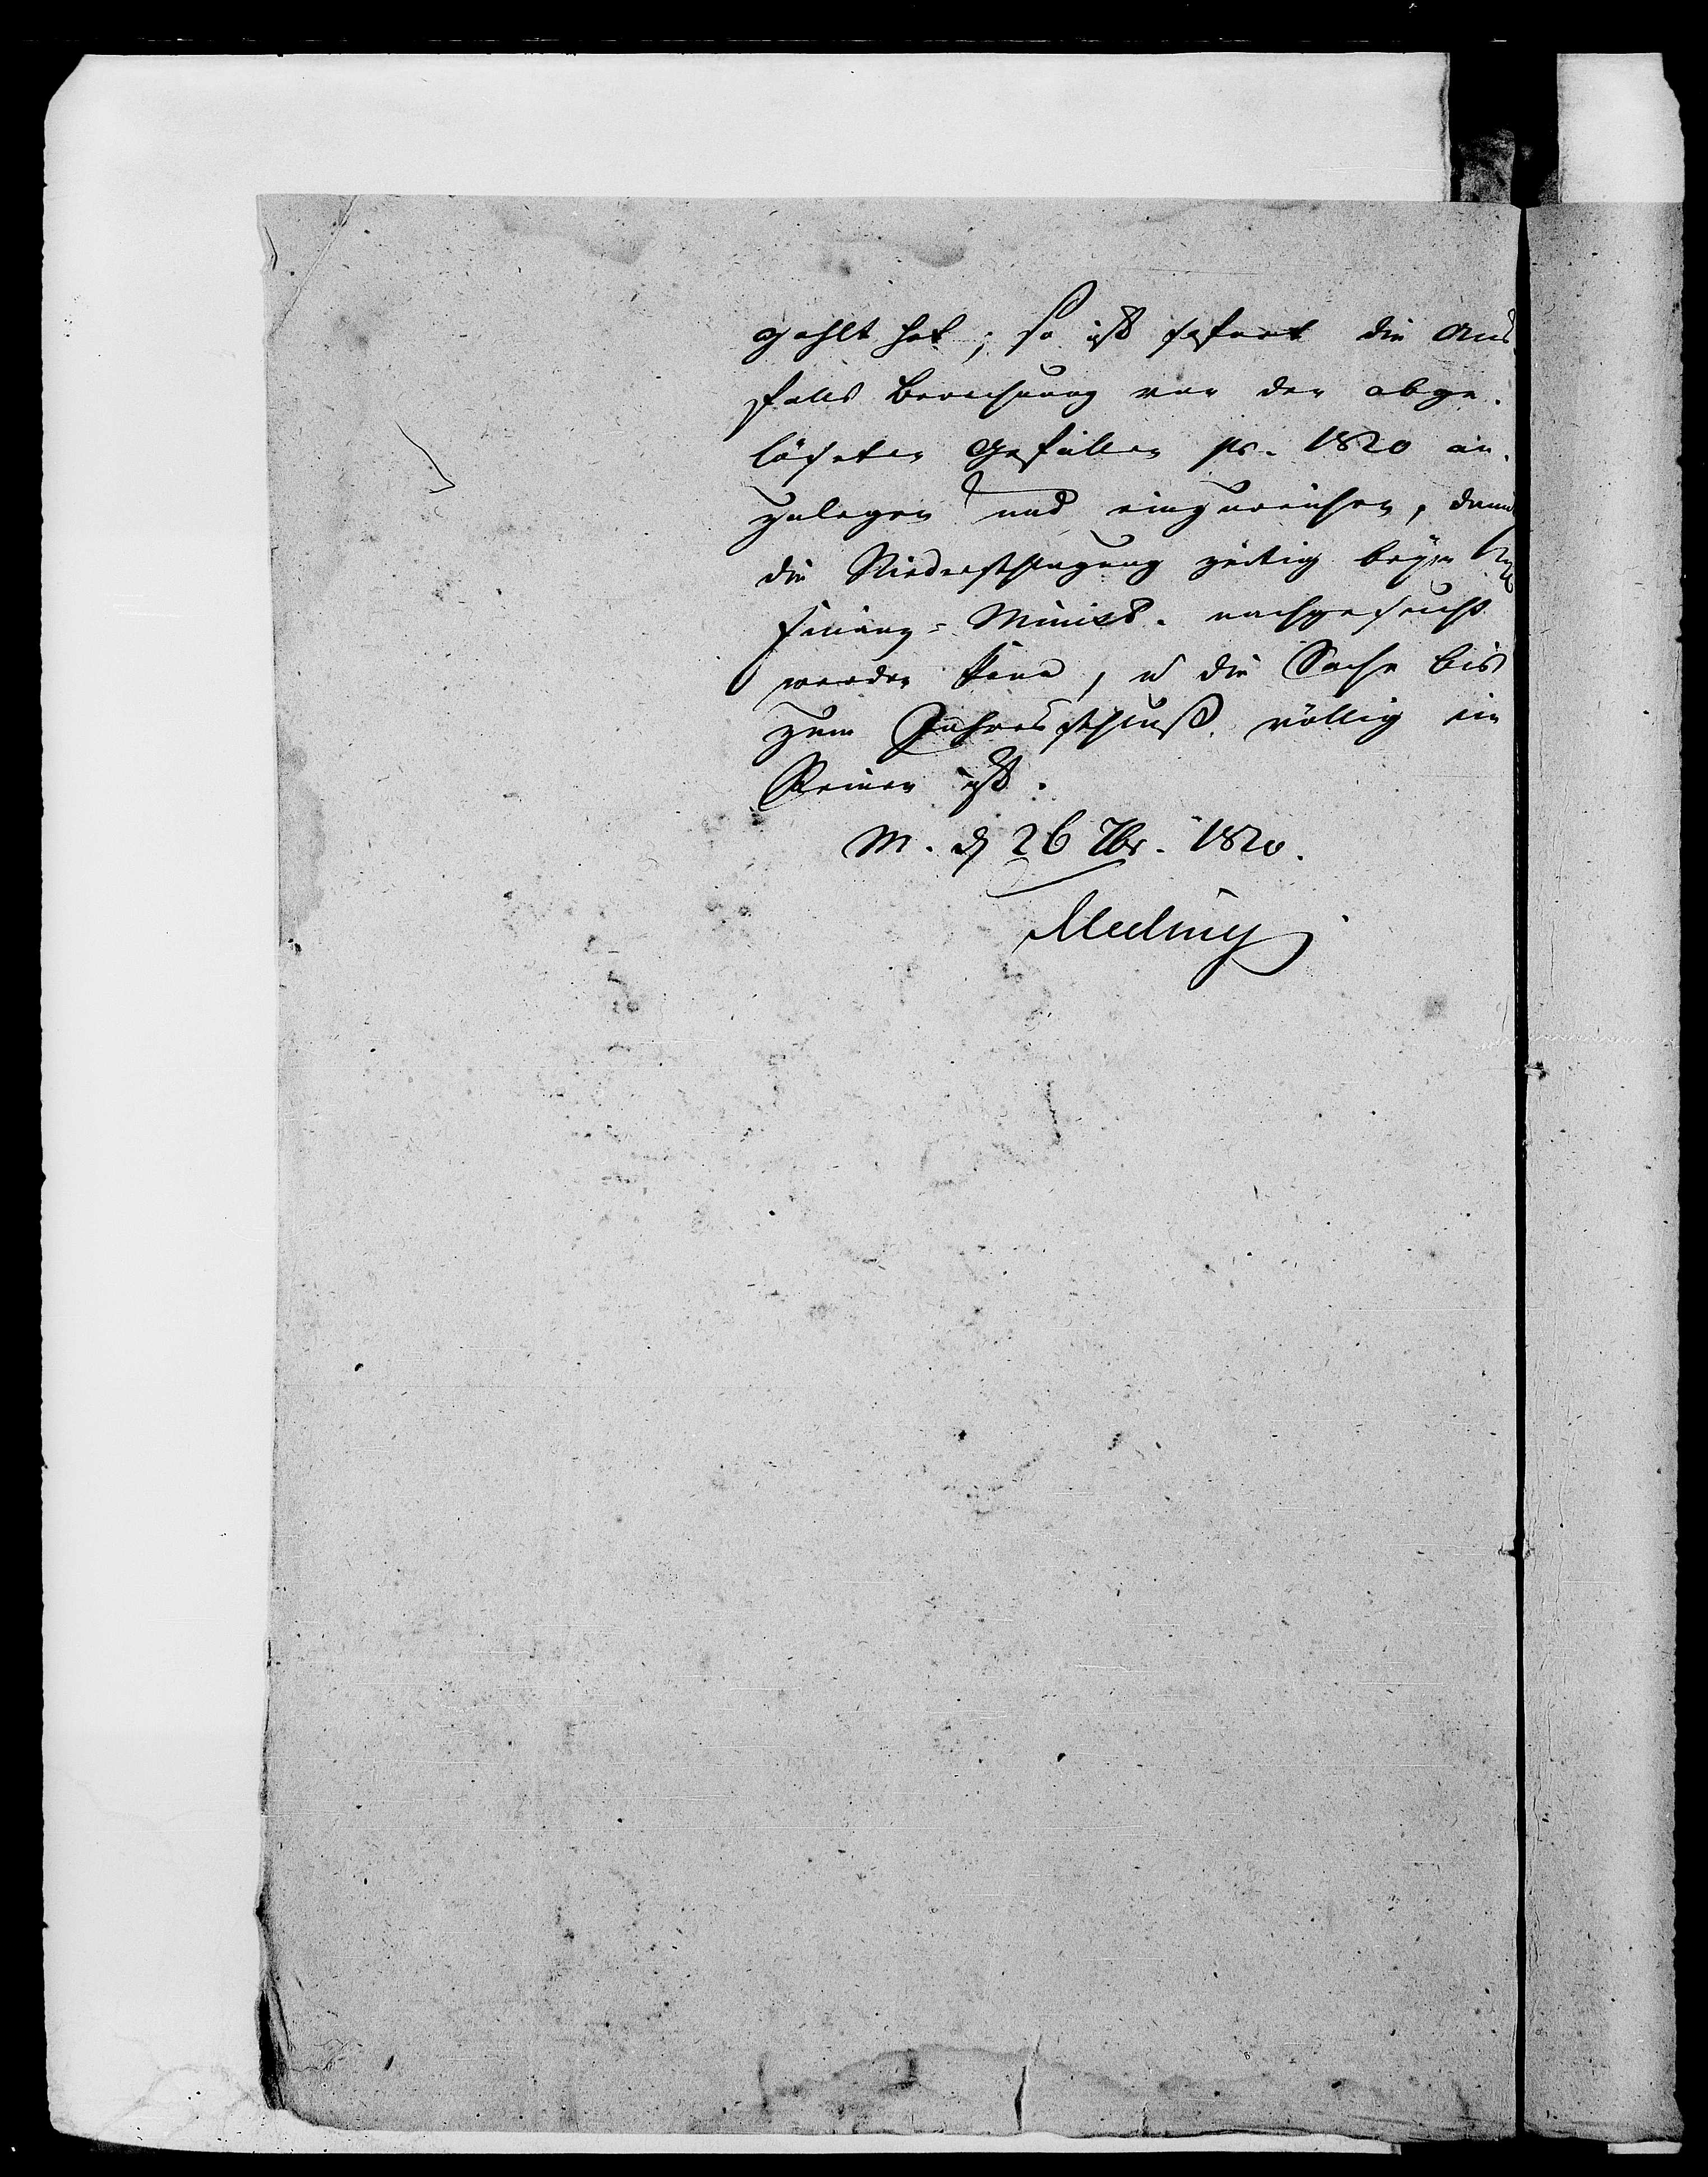 zahlt hat; so ist sofort die Aus
falls Berechnung von den abge-
lösten Gefällen pr. 1820 an-
zulegen und einzureichen, damit
die Niederschlagung zeitig beym
Finanz-Minist. nachgesucht
werden kann, u die Sache bis
zum Jahresschluß völlig im
Reinen ist.
M. d 26 7br. 1820.